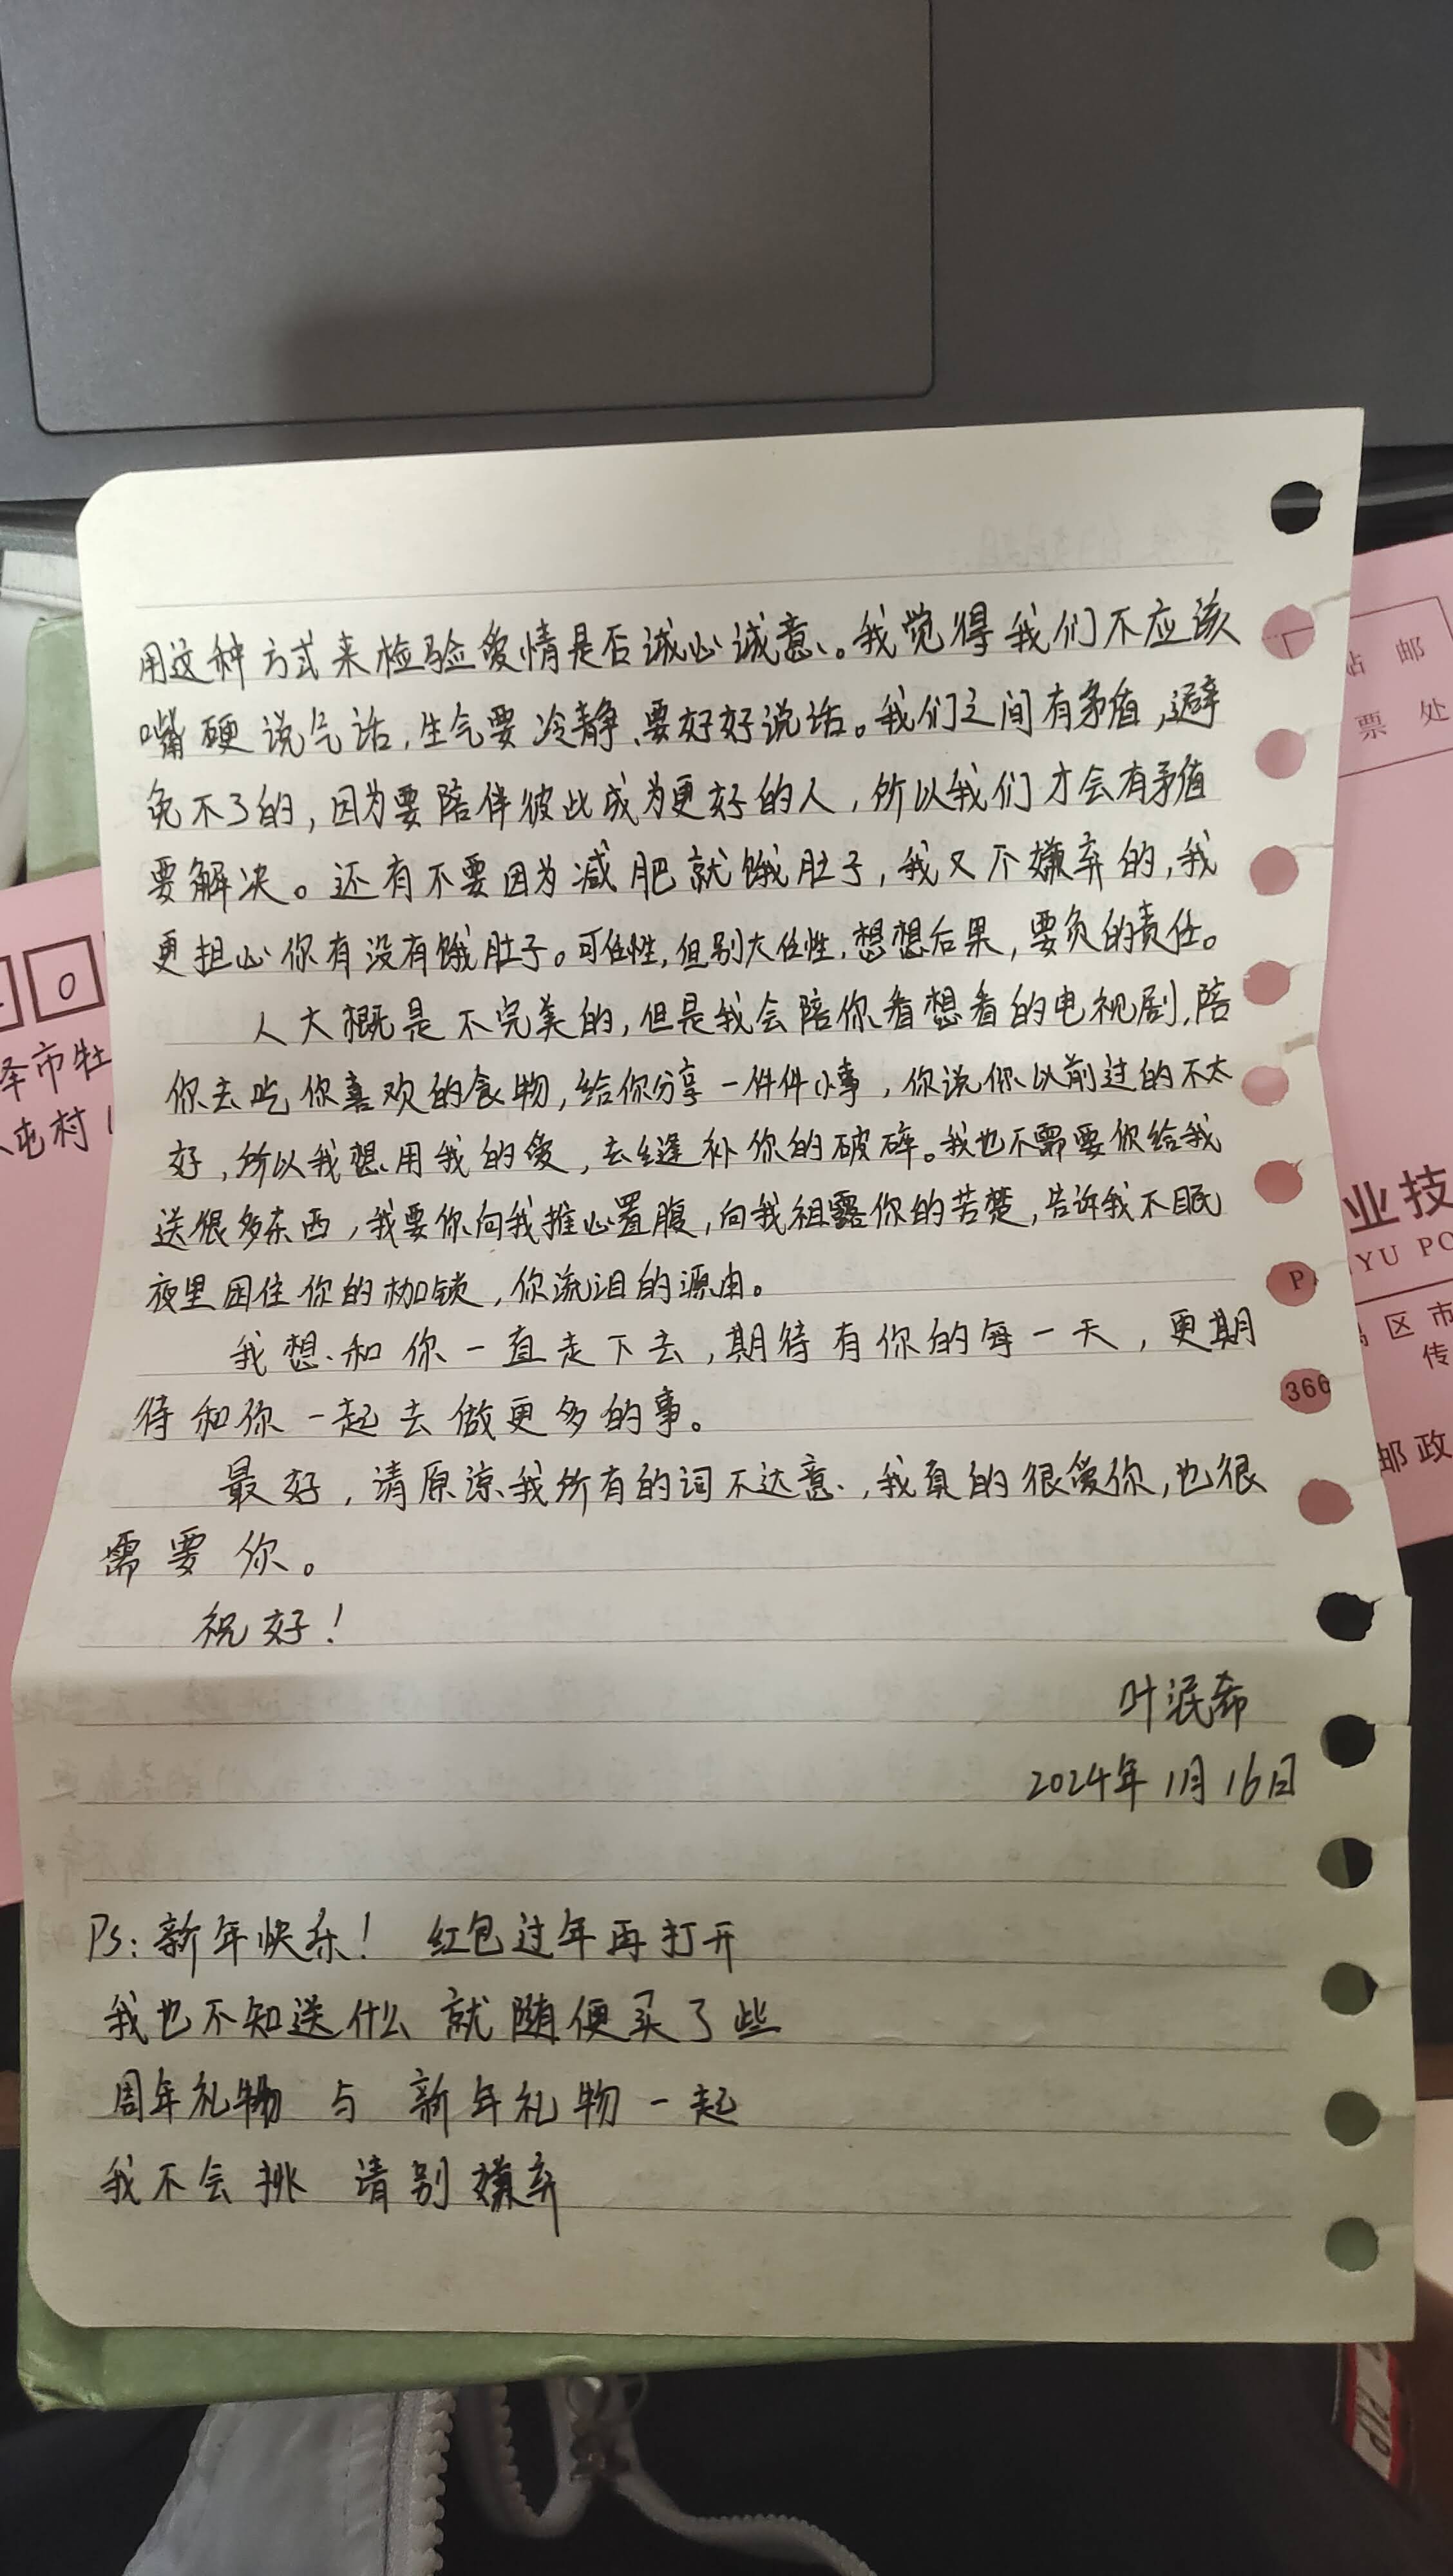 用这种方式来检验爱情是否诚心诚意。我觉得我们不应该
嘴硬说气话,生气要冷静、要好好说话。我们之间有矛值,避
免不了的,因为要陪伴彼此成为更好的人,所以我们才会有矛值
要解决。还有不要因为减肥就饿肚子,我又不嫌弃的,我
更担心你有没有饿肚子。可任性,但别太任性,想想后果,要负的责任。
人大概是不完美的,但是我会陪你看想看的电视剧,陪
你去吃你喜欢的食物,给你分享一件件小事,你说你以前过的不太
好,所以我想用我的爱,去缝补你的破碎。我也不需要你给我
送很多东西,我要你向我推心置腹,向我袒露你的苦楚,告诉我不眠
夜里困住你的枷锁,你流泪的源由。
我想和你一直走下去,期待有你的每一天,更期
待和你一起去做更多的事。
最好,请原谅我所有的词不达意,我真的很爱你,也很
需要你。
祝好!
叶泯希
2024年1月16日
Ps:新年快乐! 红包过年再打开
我也不知送什么 就随便买了些
周年礼物 与 新年礼物一起
我不会挑 请别嫌弃
0
泽市牡
屯村
站 邮
票 处
业技
YU PO
P
区市
传
366
邮政